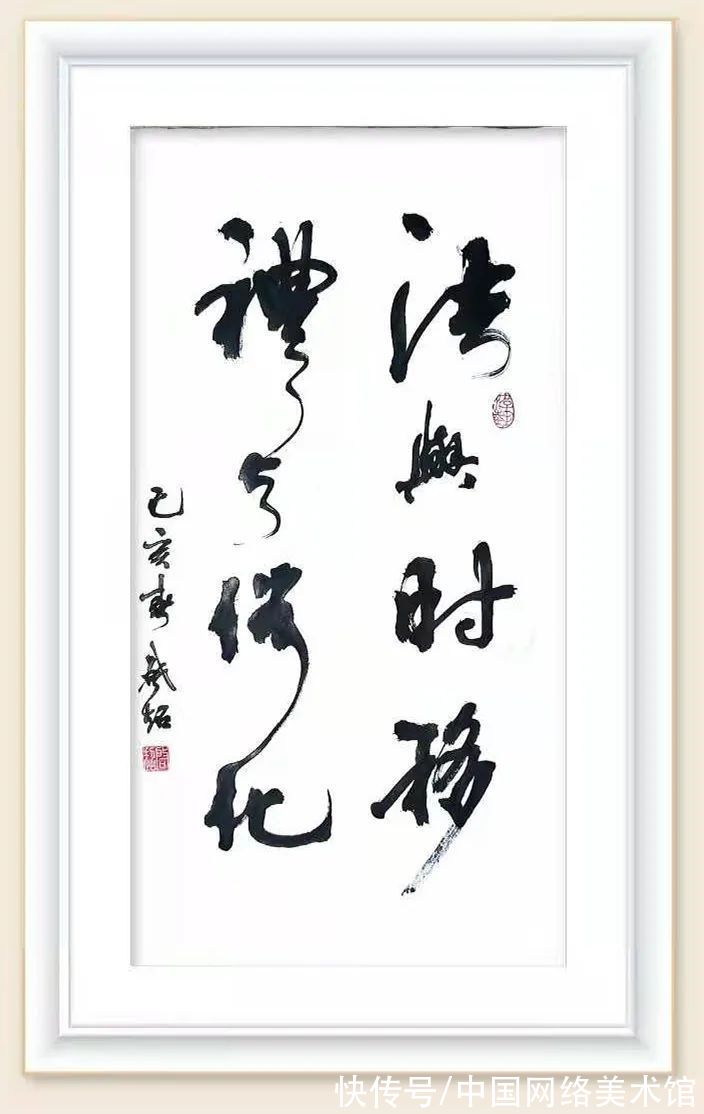 法與时移
禮与俗化
己亥春
快传号/中国网络美术馆